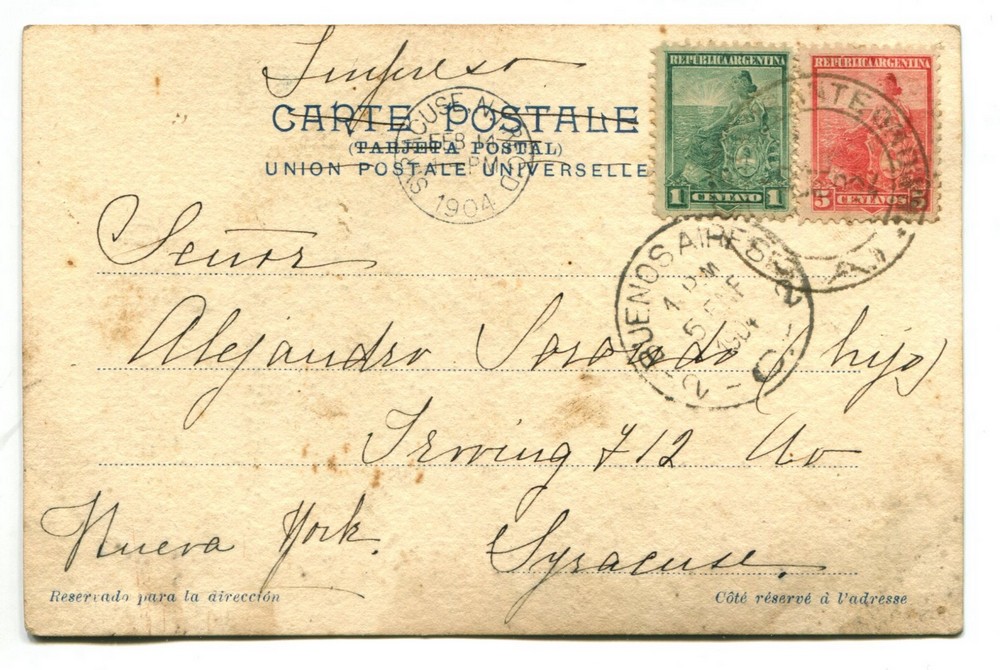 Impreso
CARTE POSTALE
(TARJETA POSTAL)
UNION POSTALE UNIVERSELLE
SYRACUSE, N.Y. REC'D
FEB 14
PM
1904
REPÚBLICA ARGENTINA
1 CENTAVO 1
REPÚBLICA ARGENTINA
5 CENTAVOS
BUENOS AIRES
1 PM
5 ENE
1904
Señor
Alejandro Sorondo (hijo)
Irving 712 Av
Nueva York. Syracuse.
Reservado para la dirección
Côté réservé à l'adresse